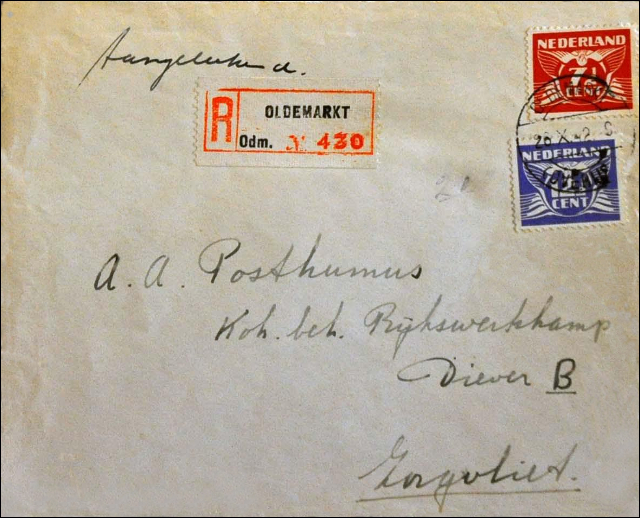 Aangetekend.
R
OLDEMARKT
Odm. № 430
NEDERLAND
7½
CENT
26 X 42
NEDERLAND
CENT
A. A. Posthumus
Koh. beh. Rijkswerkkamp
Diever B
Zorgvliet.